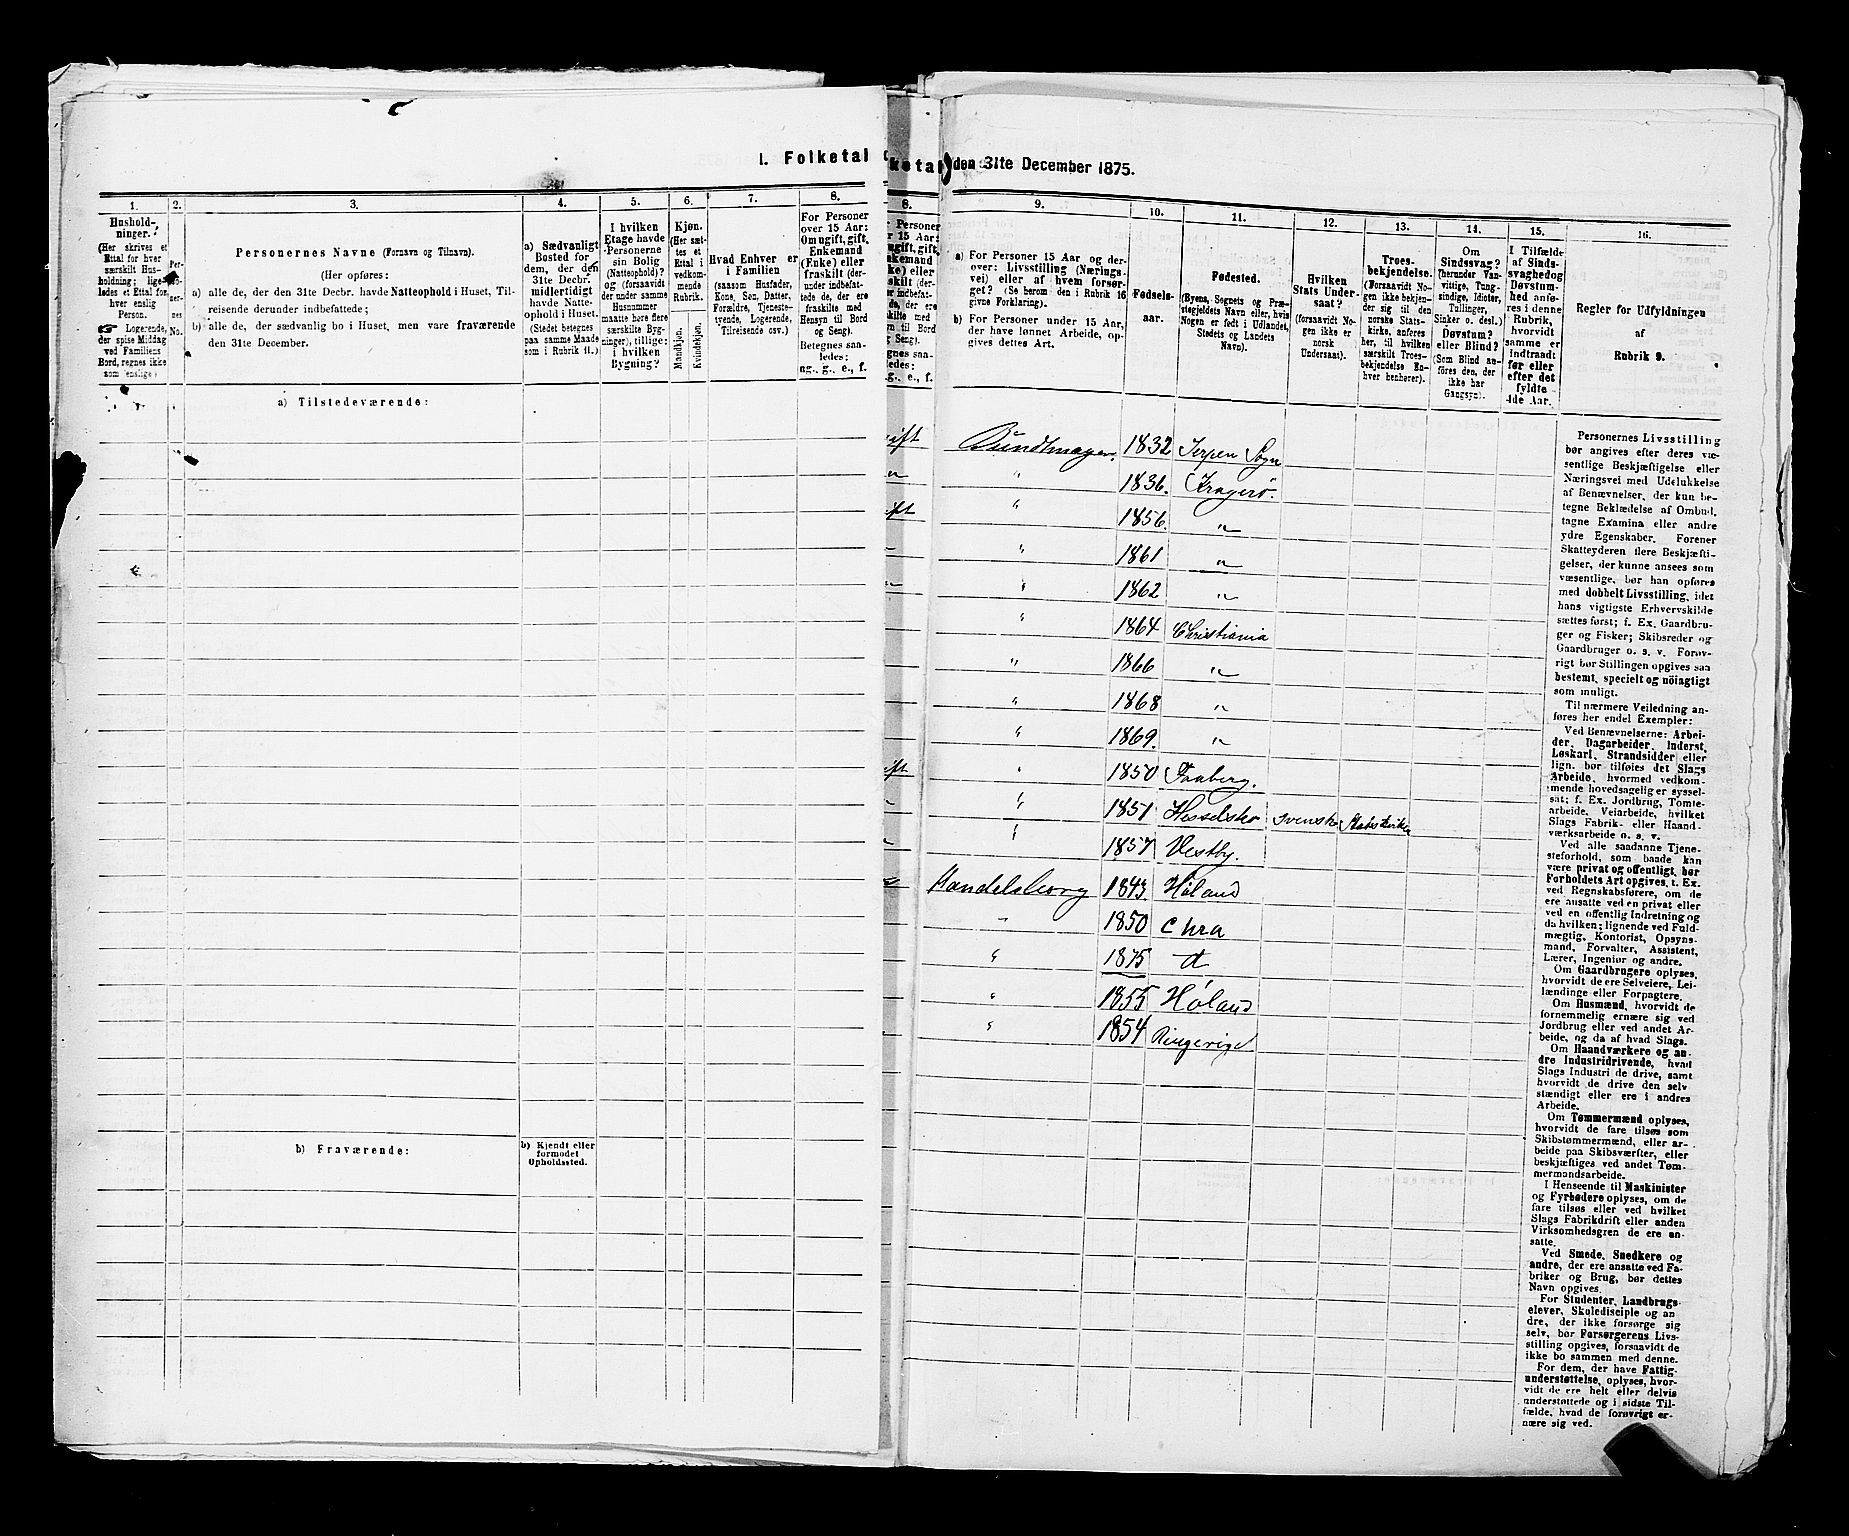 I. Folketal
ketal
den 31te December 1875.
1.
2.
3.
4.
5.
6.
7.
8.
Hushold-
ninger.
(Her skrives et
Ettal for hver
særskilt Hus-
holdning; lige-
ledes et Ettal for
hver enslig
Person.
☞ Logerende,
der spise Middag
ved Familiens
Bord, regnes ikke
som enslige.)
No.
Personernes Navne (Fornavn og Tilnavn).
(Her opføres:
a) alle de, der den 31te Decbr. havde Natteophold i Huset, Til-
reisende derunder indbefattede;
b) alle de, der sædvanlig bo i Huset, men vare fraværende
den 31te December.
a) Sædvanligt
Bosted for
dem, der den
31te Decbr.
midlertidigt
havde Natte-
ophold i Huset.
(Stedet betegnes
paa samme Maade
som i Rubrik 11.)
I hvilken
Etage havde
Personerne
sin Bolig
(Natteophold)?
og (forsaavidt
der under samme
Husnummer
maatte høre flere
særskilte Byg-
ninger), tillige:
i hvilken
Bygning?
Kjøn.
(Her sæt-
tes et
Ettal i
vedkom-
mende
Rubrik.
Mandkjøn.
Kvindekjøn.
Hvad Enhver er
i Familien
(saasom Husfader,
Kone, Søn, Datter,
Forældre, Tjeneste-
tyende, Logerende,
Tilreisende osv.)
For Personer
over 15 Aar:
Om ugift, gift,
Enkemand
(Enke) eller
fraskilt (der-
under indbefat-
tede de, der ere
fraskilte med
Hensyn til Bord
og Seng).
Betegnes saa-
ledes:
ug., g., e., f.
a) Tilstedeværende:
b) Fraværende:
b) Kjendt eller
formodet
Opholdssted.
8.
9.
10.
11.
12.
13.
14.
15.
16.
a) For Personer 15 Aar og der-
over: Livsstilling (Nærings-
vei) eller af hvem forsør-
get? (Se herom den i Rubrik 16
givne Forklaring).
b) For Personer under 15 Aar,
der have lønnet Arbeide, op-
gives dettes Art.
Fødsels-
aar.
Fødested.
(Byens, Sognets og Præ-
stegjeldets Navn eller, hvis
Nogen er født i Udlandet,
Stedets og Landets
Navn).
Hvilken
Stats Under-
saat?
(forsaavidt No-
gen ikke er
norsk
Undersaat).
Troes-
bekjendelse.
(Forsaavidt No-
gen ikke bekjen-
der sig til den
norske Stats-
kirke, anføres
her, til hvilken
særskilt Troes-
bekjendelse En-
hver henhører).
Om
Sindssvag?
(herunder Van-
vittige, Tung-
sindige, Idioter,
Tullinger,
Sinker o. desl.)
Døvstum?
eller Blind?
(Som Blind an-
føres den, der
ikke har
Gangsyn).
I Tilfælde
af Sinds-
svaghed og
Døvstum-
hed anfø-
res i denne
Rubrik,
hvorvidt
samme er
indtraadt
før eller
efter det
fyldte
4de Aar.
Regler for Udfyldningen
af
Rubrik 9.
Bundtmager. 1832 Jerpen Sogn
" 1836. Kragerø.
" 1856. "
" 1861 "
" 1862 "
" 1864 Christiania
" 1866 "
" 1868 "
" 1869. "
" 1850 Faaberg.
" 1851 svensk Statskirke
" 1857 Vestby.
Handelsborg 1843. Høland
" 1850 Chra
" 1875 d
" 1855 Høland
" 1854 Ringerige
Personernes Livsstilling
bør angives efter deres væ-
sentlige Beskjæftigelse eller
Næringsvei med Udelukkelse
af Benævnelser, der kun be-
tegne Beklædelse af Ombud,
tagne Examina eller andre
ydre Egenskaber. Forener
Skatteyderen flere Beskjæfti-
gelser, der kunne ansees som
væsentlige, bør han opføres
med dobbelt Livsstilling, idet
hans vigtigste Erhvervskilde
sættes først; f. Ex. Gaardbru-
ger og Fisker; Skibsreder og
Gaardbruger o. s. v. Forøv-
rigt bør Stillingen opgives saa
bestemt, specielt og nøiagtigt
som muligt.
Til nærmere Veiledning an-
føres her endel Exempler:
Ved Benævnelserne: Arbei-
der, Dagarbeider, Inderst,
Løskarl, Strandsidder eller
lign. bør tilføies det Slags
Arbeide, hvormed vedkom-
mende hovedsagelig er syssel-
sat; f. Ex. Jordbrug, Tomte-
arbeide, Veiarbeide, hvilket
Slags Fabrik- eller Haand-
værksarbeide o. s. v.
Ved alle saadanne Tjene-
steforhold, som baade kan
være privat og offentlig, bør
Forholdets Art opgives, t. Ex.
ved Regnskabsførere, om de
ere ansatte ved en privat eller
ved en offentlig Indretning og
da hvilken; lignende ved Fuld-
mægtig, Kontorist, Opsyns-
mand, Forvalter, Assistent,
Lærer, Ingeniør og andre.
Om Gaardbrugere oplyses,
hvorvidt de ere Selveiere, Lei-
lændinge eller Forpagtere.
Om Husmænd, hvorvidt de
fornemmelig ernære sig ved
Jordbrug eller ved andet Ar-
beide, og da af hvad Slags.
Om Haandværkere og an-
dre Industridrivende, hvad
Slags Industri de drive, samt
hvorvidt de drive den selv-
stændigt eller ere i andres
Arbeide.
Om Tømmermænd oplyses,
hvorvidt de fare tilsøs som
Skibstømmermænd, eller ar-
beide paa Skibsværfter, eller
beskjæftiges ved andet Tøm-
mermandsarbeide.
I Henseende til Maskinister
og Fyrbødere oplyses, om de
fare tilsøs eller ved hvilket
Slags Fabrikdrift eller anden
Virksomhedsgren de ere an-
satte.
Ved Smede, Snedkere og
andre, der ere ansatte ved Fa-
briker og Brug, bør dettes
Navn opgives.
For Studenter, Landbrugs-
elever, Skoledisciple og an-
dre, der ikke forsørge sig
selv, bør Forsørgerens Livs-
stilling opgives, forsaavidt de
ikke bo sammen med denne.
For dem, der have Fattig-
understøttelse, oplyses, hvor-
vidt de ere helt eller delvis
understøttede og i sidste Til-
fælde, hvad de forøvrigt er-
nære sig ved.